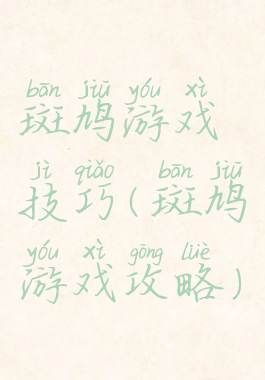 bān jiū yóu xì
斑鸠游戏
jì qiǎo bān jiū
技巧(斑鸠
yóu xì gōng lüè
游戏攻略)